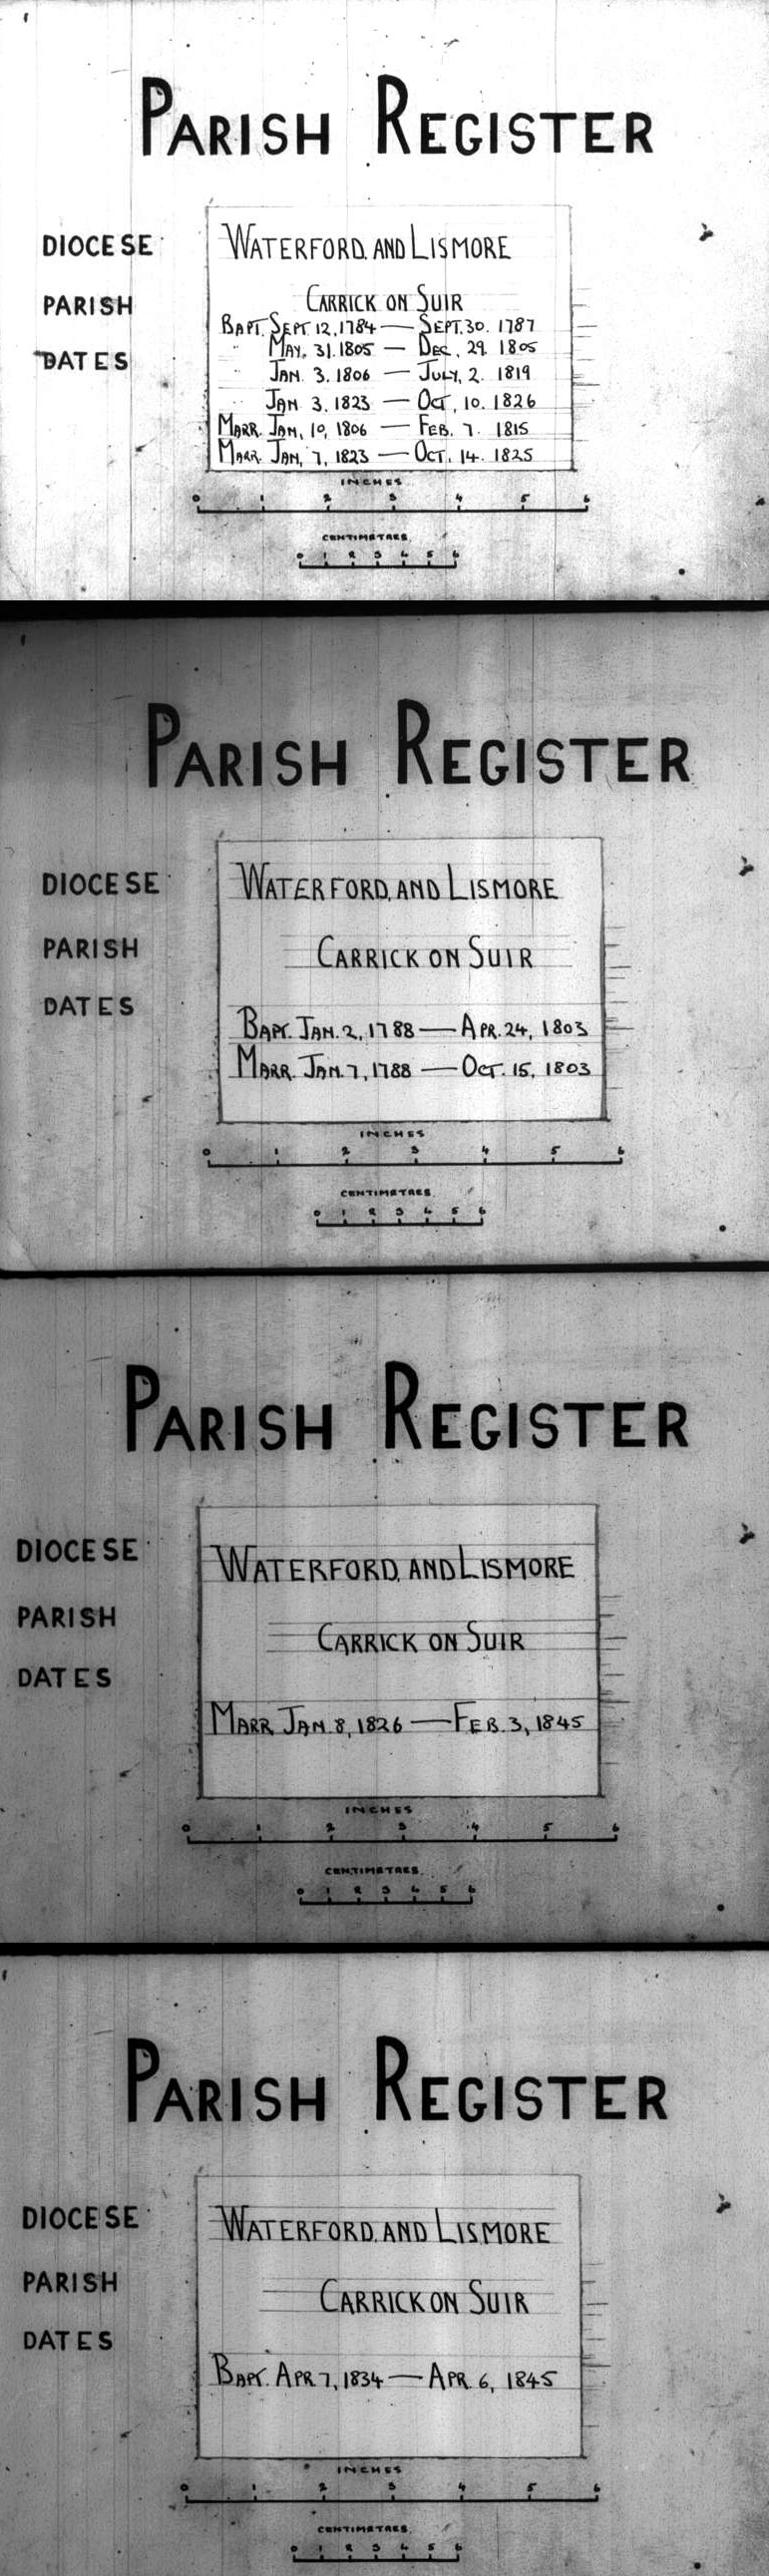 PARISH REGISTER
DIOCESE WATERFORD. AND LISMORE
PARISH CARRICK ON SUIR
DATES BAPT. SEPT. 12, 1784 — SEPT. 30. 1787
" MAY. 31. 1805 — DEC. 29. 1805
" JAN. 3. 1806 — JULY, 2. 1819
" JAN 3. 1823 — OCT, 10. 1826
MARR. JAN, 10, 1806 — FEB. 7. 1815
MARR. JAN, 7, 1823 — OCT. 14. 1825
INCHES
0 1 2 3 4 5 6
CENTIMETRES
0 1 2 3 4 5 6
PARISH REGISTER
DIOCESE WATERFORD. AND LISMORE
PARISH CARRICK ON SUIR
DATES BAPT. JAN. 2, 1788 — APR. 24, 1803
MARR. JAN. 7, 1788 — OCT. 15, 1803
INCHES
0 1 2 3 4 5 6
CENTIMETRES
0 1 2 3 4 5 6
PARISH REGISTER
DIOCESE WATERFORD. AND LISMORE
PARISH CARRICK ON SUIR
DATES MARR JAN. 8, 1826 — FEB. 3, 1845
INCHES
0 1 2 3 4 5 6
CENTIMETRES
0 1 2 3 4 5 6
PARISH REGISTER
DIOCESE WATERFORD. AND LISMORE
PARISH CARRICK ON SUIR
DATES BAPT. APR 7, 1834 — APR. 6, 1845
INCHES
0 1 2 3 4 5 6
CENTIMETRES
0 1 2 3 4 5 6